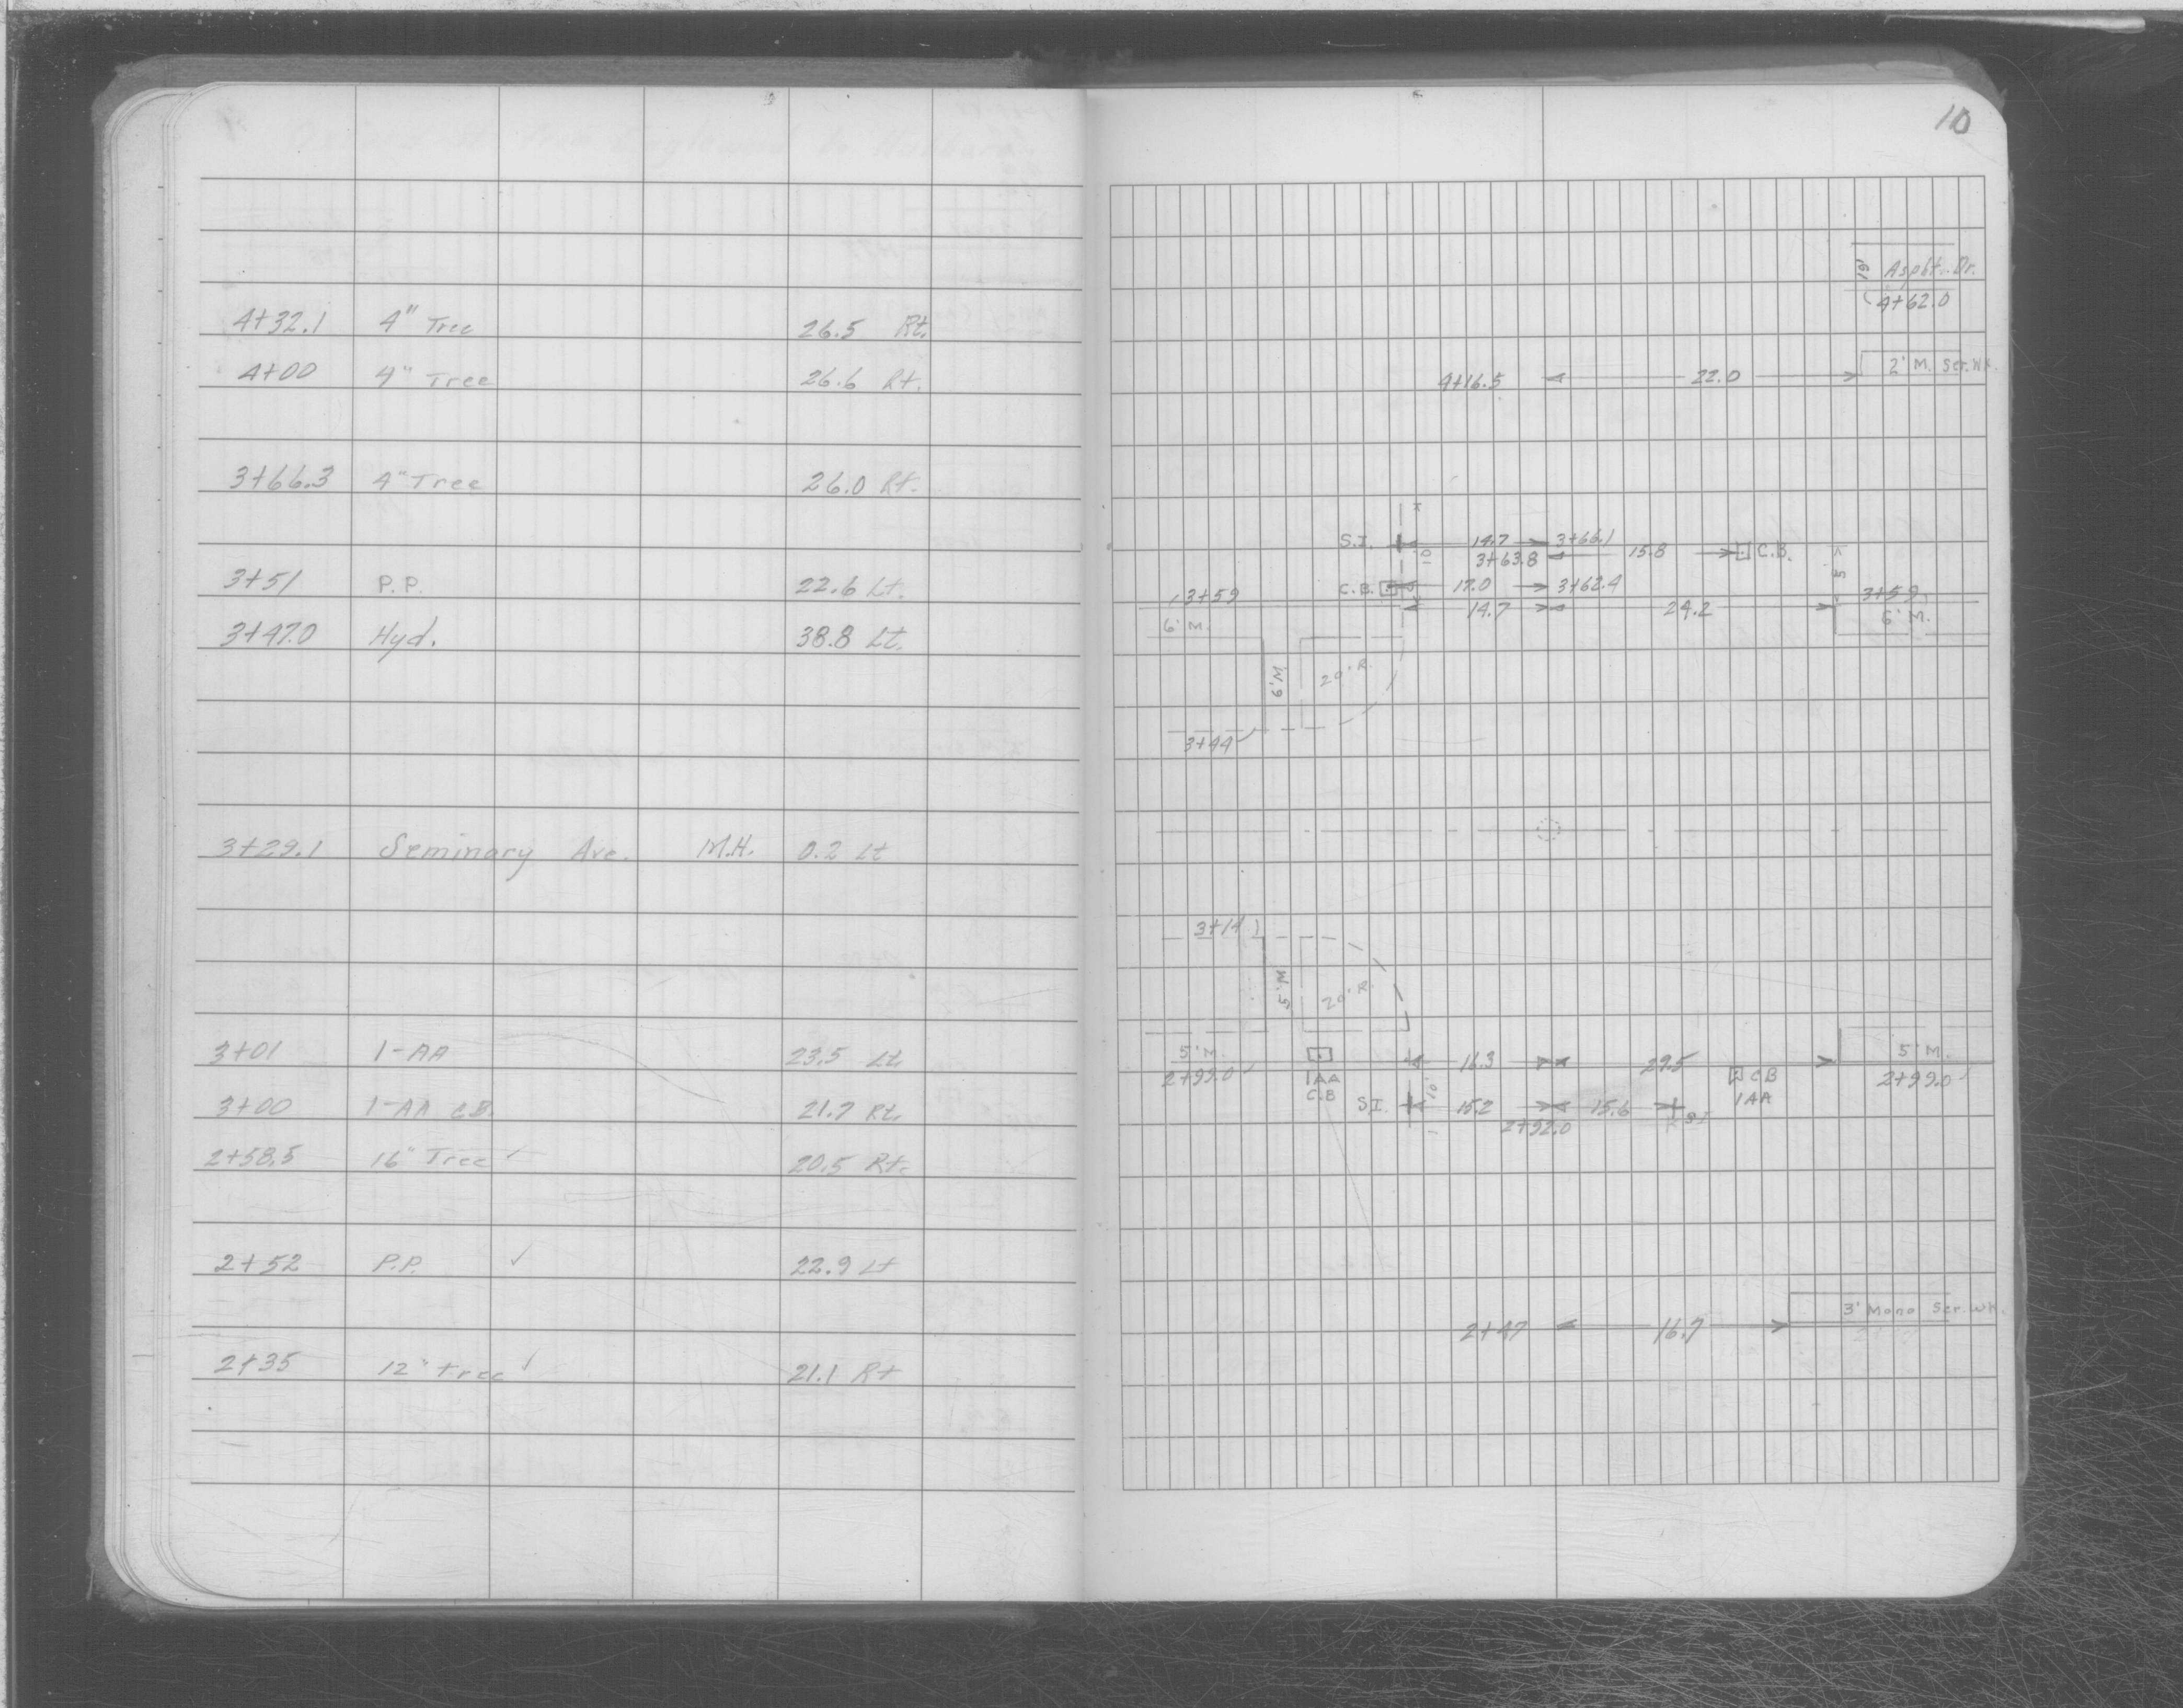 4+32.1 4" Tree 26.5 Rt.
4+00 4" Tree 26.6 Rt.
3+66.3 4" Tree 26.0 Rt.
3+51 P.P. 22.6 Lt.
3+47.0 Hyd. 38.8 Lt.
3+29.1 Seminary Ave. M.H. 0.2 Lt
3+01 1-AA 23.5 Lt
3+00 1-AA C.B. 21.7 Rt.
2+58.5 16" Tree ✓ 20.5 Rt.
2+52 P.P. ✓ 22.9 Lt
2+35 12" Tree ✓ 21.1 Rt
10
19' Aspht. Dr.
4+62.0
4+16.5 22.0 2' M. Ser. Wk.
S.I. 14.7 3+66.1
10 3+63.8 15.8 C.B.
C.B. 17.0 3+62.4 5
3+59 14.7 24.2 3+59
6' M. 6' M.
6' M. 20' R.
3+44
3+14
5' M 20' R.
5' M. 16.3 29.5 5' M.
2+99.0 1AA C.B CB 1AA 2+99.0
S.I. 10' 15.2 15.6 S.I
2+92.0
3' Mono Ser. Wk.
2+47 16.7